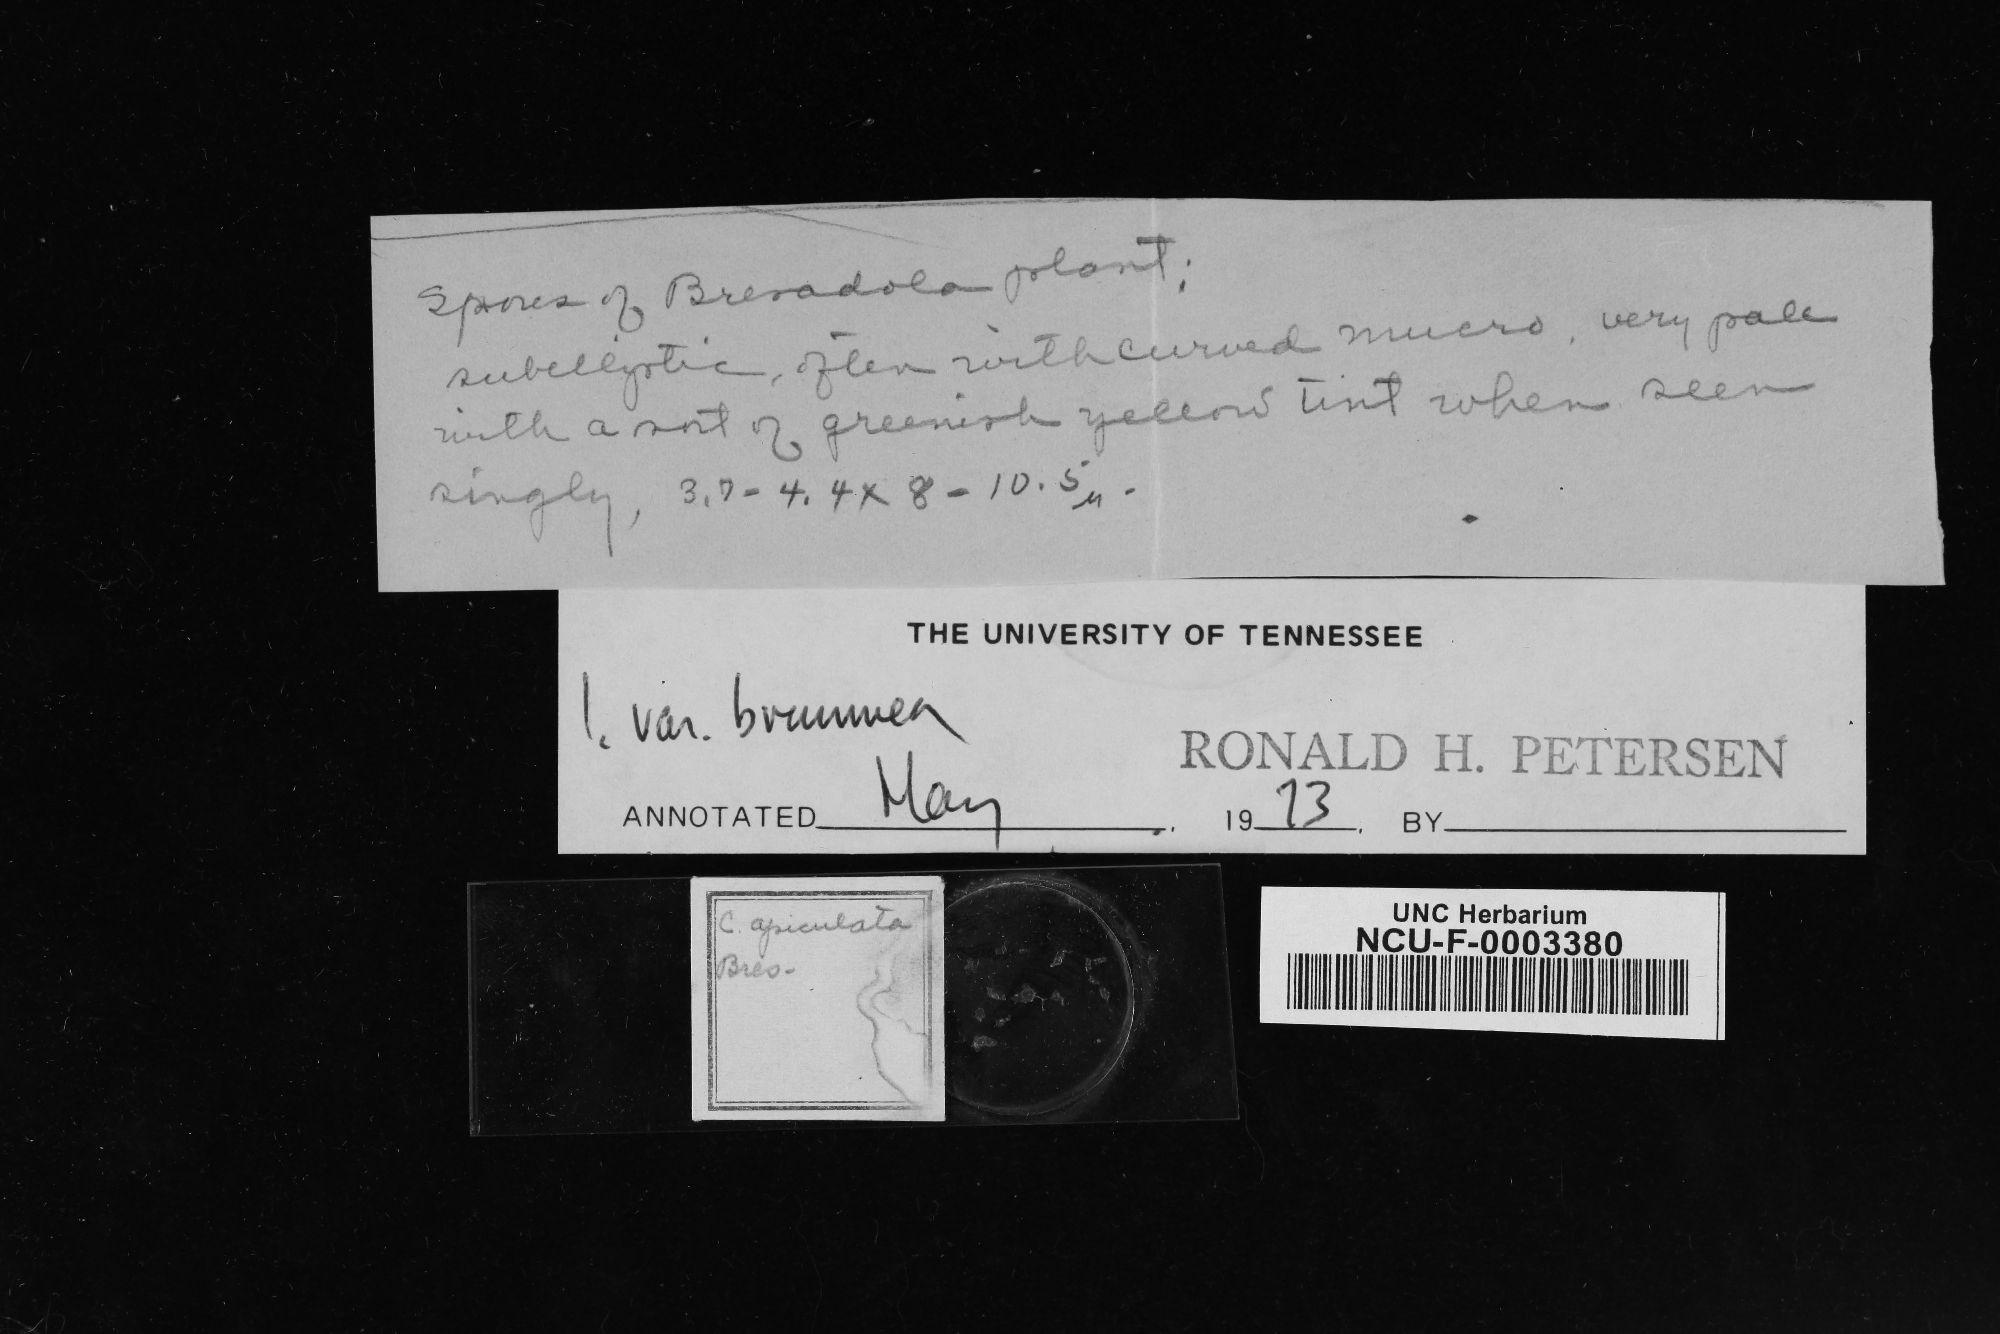 Spores of Bresadola plant:
subelliptic, often with curved mucro, very pale
with a sort of greenish yellow tint when seen
singly, 3.7-4.4 x 8-10.5µ.
THE UNIVERSITY OF TENNESSEE
1. var. brunnea
RONALD H. PETERSEN
ANNOTATED May, 1973, BY
C. apiculata
Bres.
UNC Herbarium
NCU-F-0003380